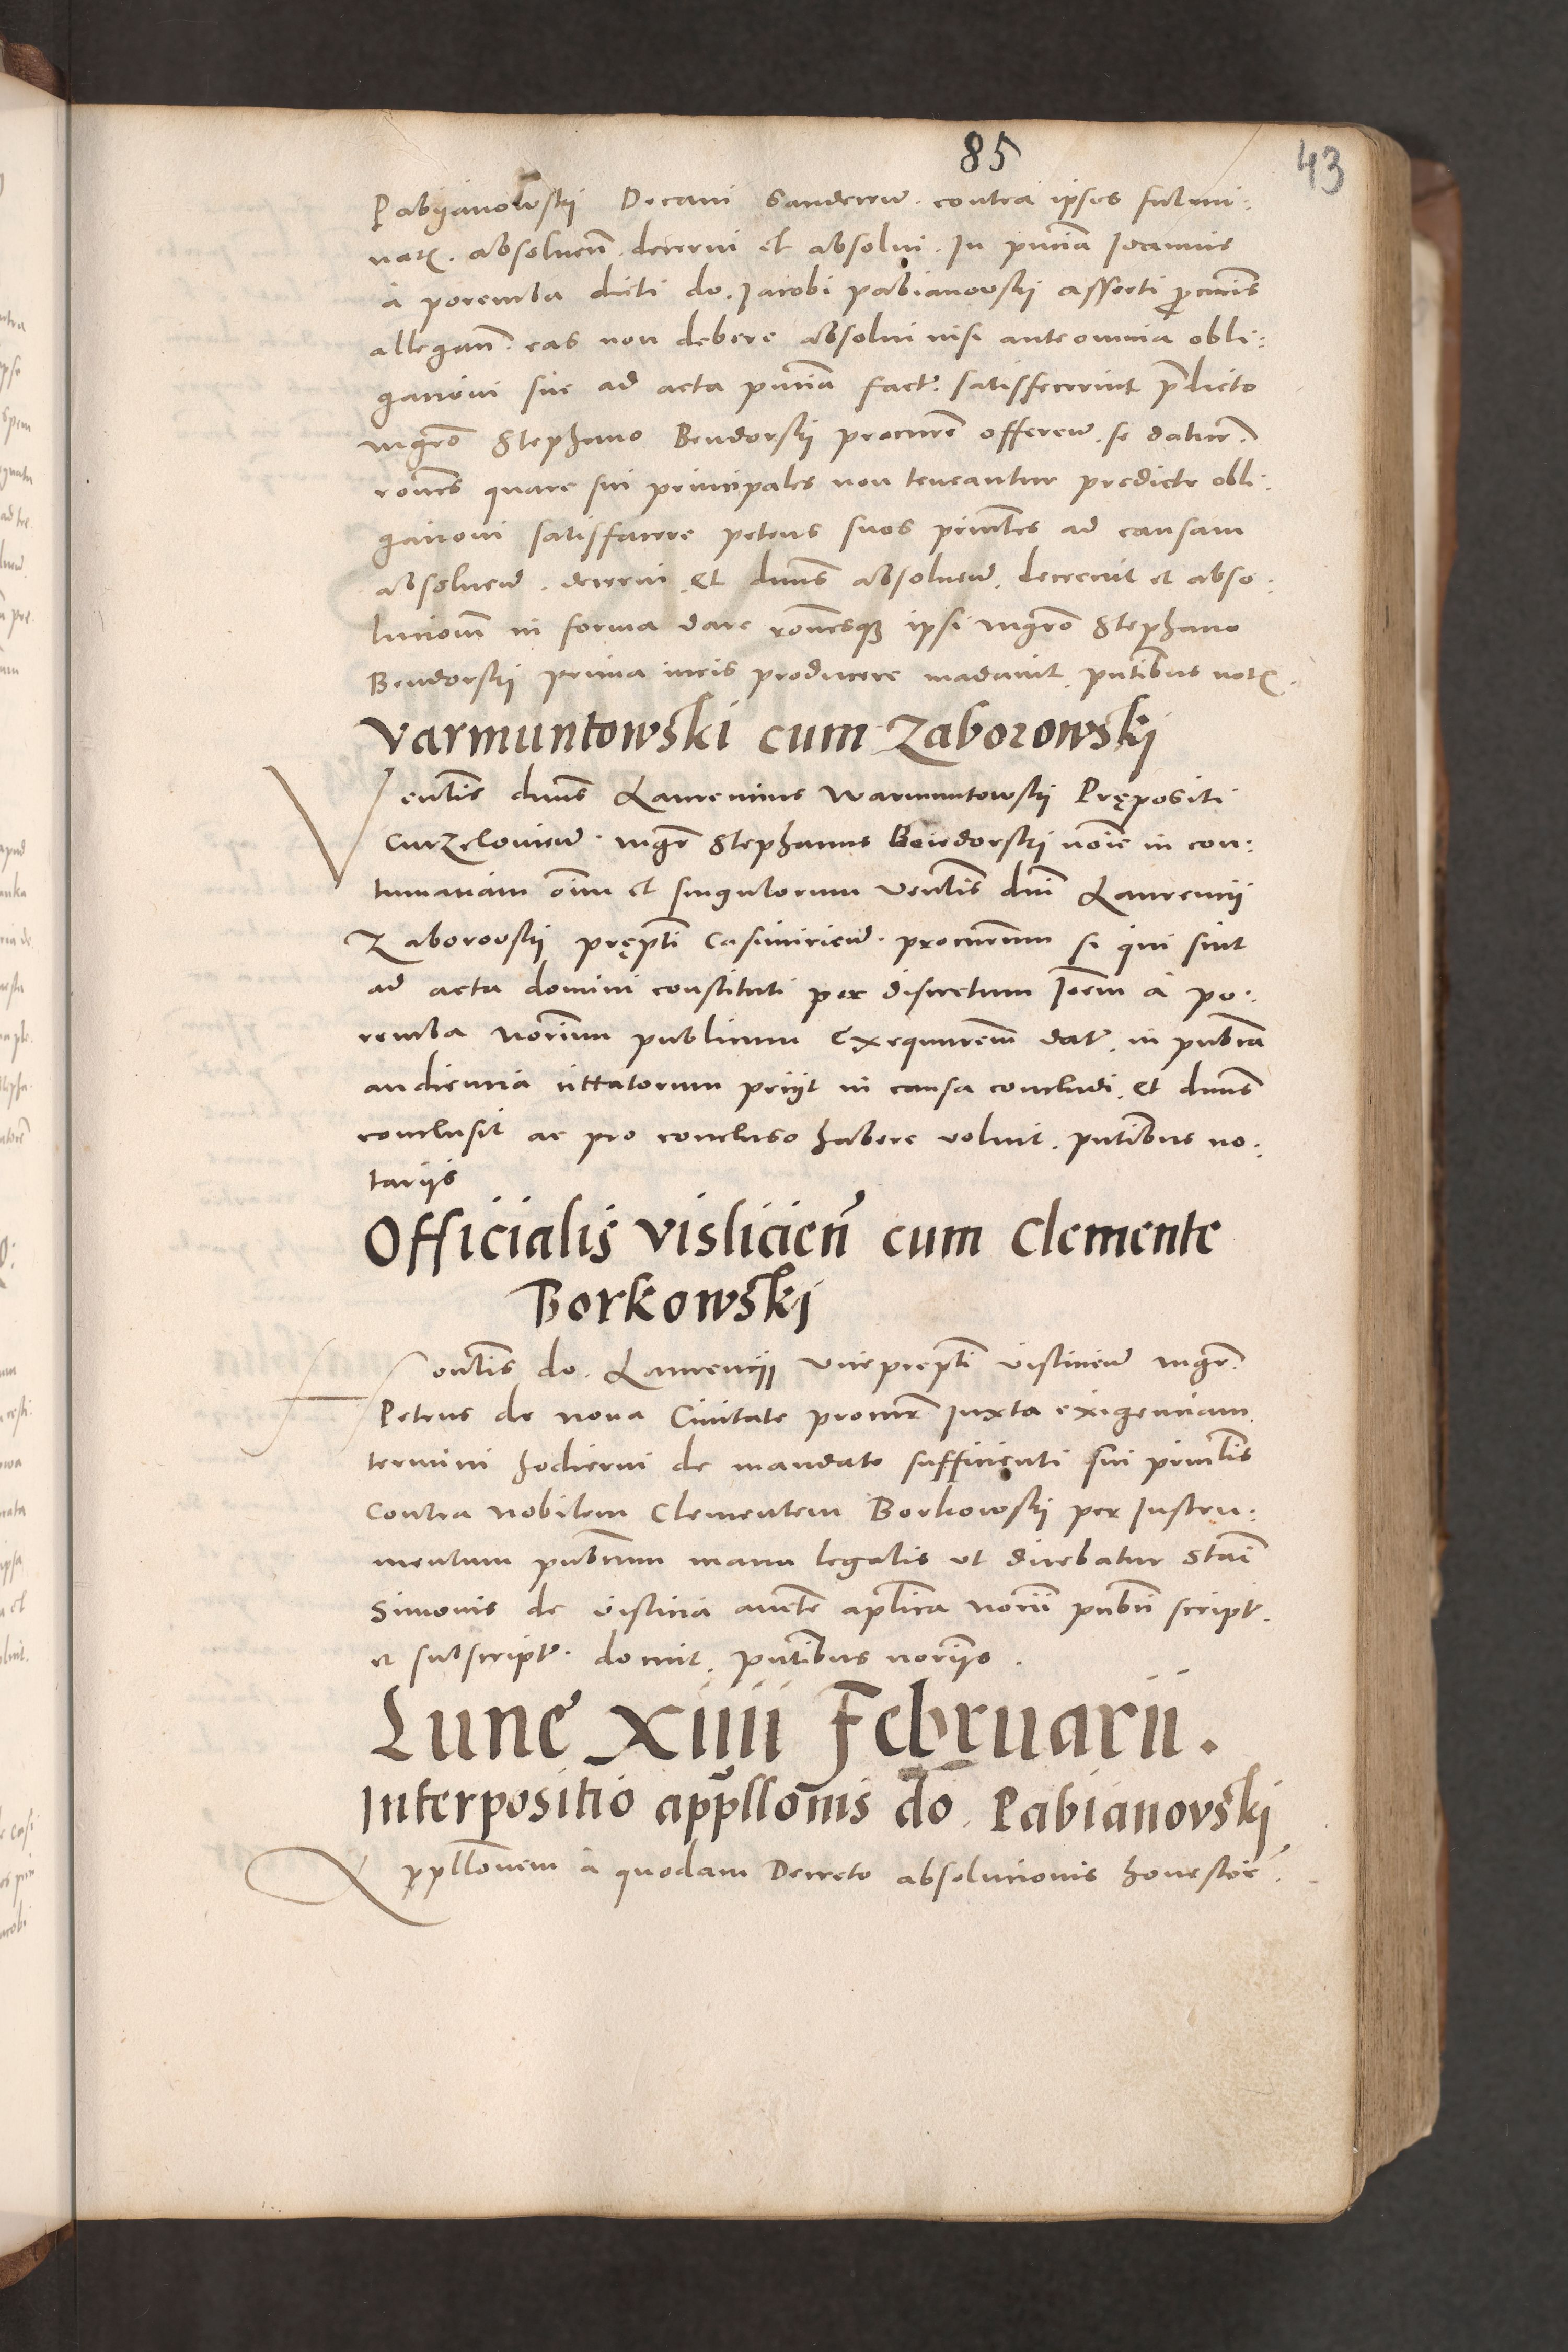 85
43
Pabijanowskij Decani Sandecien̄. contra ipsos fulmi:
nat. absolven̄. decerni et absolvi. In p̄ntia Ioannis
à poremba dicti do. Jacobi pabianovskij asserti ꝓcuris
allegan̄. eas non debere absolvi nisi anteomnia obli:
gationi sue ad acta p̄ntia fact. satisfecerint p̄dicto
mgro Stephano Bendorskij procure offeren̄. se datur.
rones quare sui principales non teneantur predicte obli:
gationi satisfacere petens suos prinles ad causam
absolven̄. decerni. Et dnus absolven̄. decrevit et abso:
lucionem in forma dare ronesqꝫ ipsi mgro Stephano
Bendorskij prima iuris producere madavit. pn̄tibus not.
Varmuntowski cum Zaborowskj
Ventlis dnus Laurencius Warmuntowskij Pręposití
Curzelovien̄. mgr Stephanus Bendorskij noie in con:
tumatiam oim et singulorum ventlis dni Laurencij
Zaborovskij prępti Casimirien̄. procurum si qui sint
ad acta domini constituti per discretum Ioem à po:
remba norium publicum Exequutem dat. in publica
audiencia cittatorum petijt in causa concludi. Et dnus
conclusit ac pro concluso habere voluit. pntibus no:
tariis
Officialis Visliciēn cum Clemente
Borkowskj
Hontlis do. Laurencij viceprepti vislicien̄ mgr.
Petrus de nova Civitate procur Juxta exigenciam
termini hodierni de mandato sufficienti sui prinlis
Contra nobilem Clementem Borkowskij per Instru:
mentum publicum manu legalis ut dicebatur Stani
Simonis de vislicia aucte aplica norii publici script.
et subscript. docuit. pntibus noriis.
Lune xiiii Februarii.
Interpositio appllonis do. Pabianovskj
Appllonem à quodam Decreto absolucionis honestor.